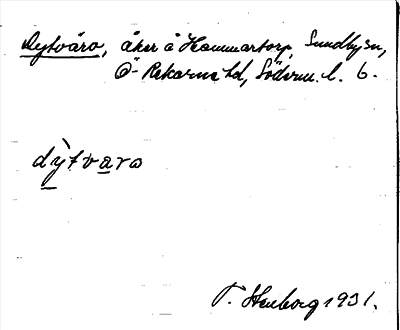 Dytvåra, åker å Hammartorp, Sundby sn,
Ö-Rekarne hd, Söderm. l. 6.
dỳtvara
T. Stenborg 1931.